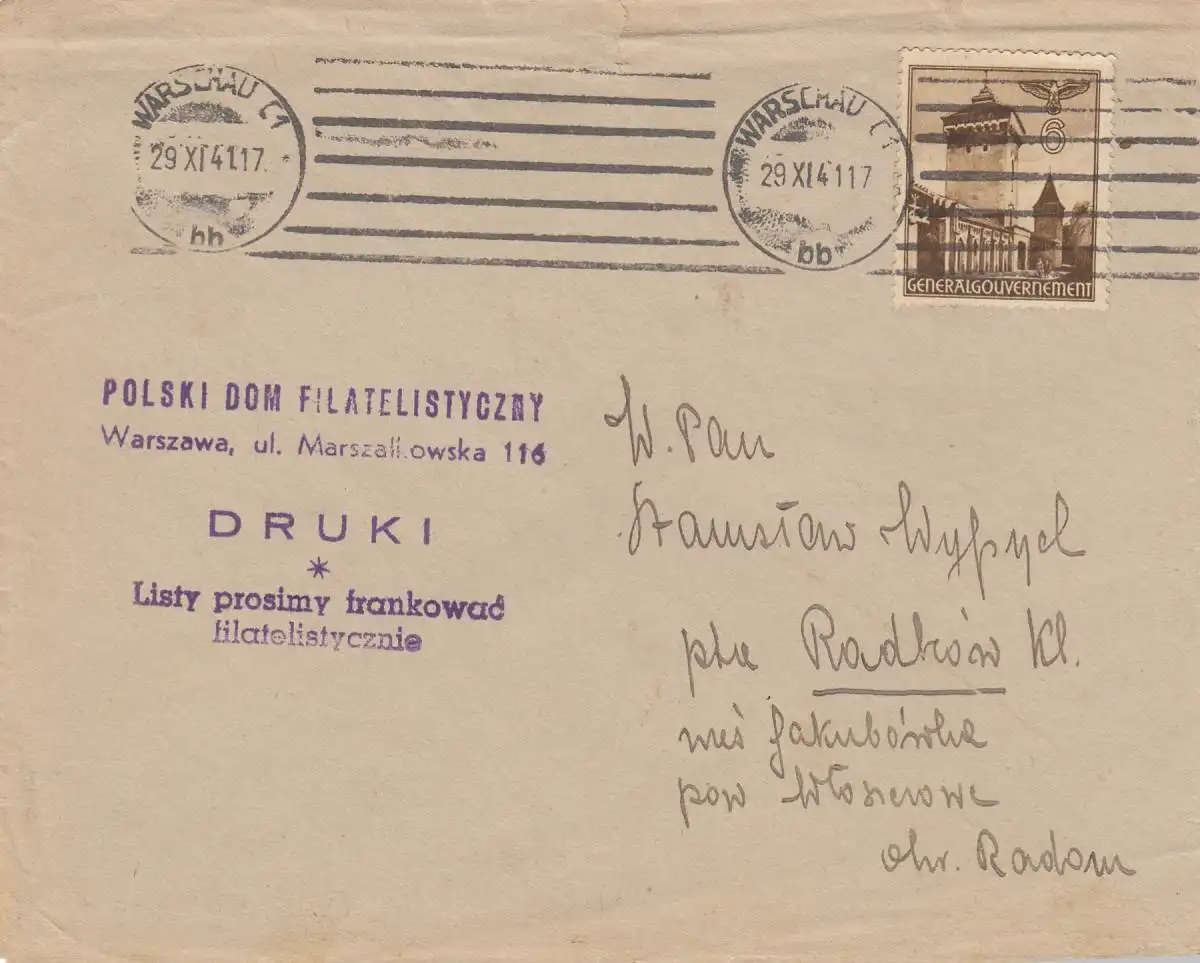 WARSCHAU C1
29 XI 41 17
bb
WARSCHAU C1
29 XI 41 17
bb
6
GENERALGOUVERNEMENT
POLSKI DOM FILATELISTYCZNY
Warszawa, ul. Marszałkowska 116
DRUKI
*
Listy prosimy frankować
filatelistycznie
W. Pan
Stanisław Wypych
pta Radków Kl.
wieś Jakubówka
pow Włoszczowa
okr. Radom